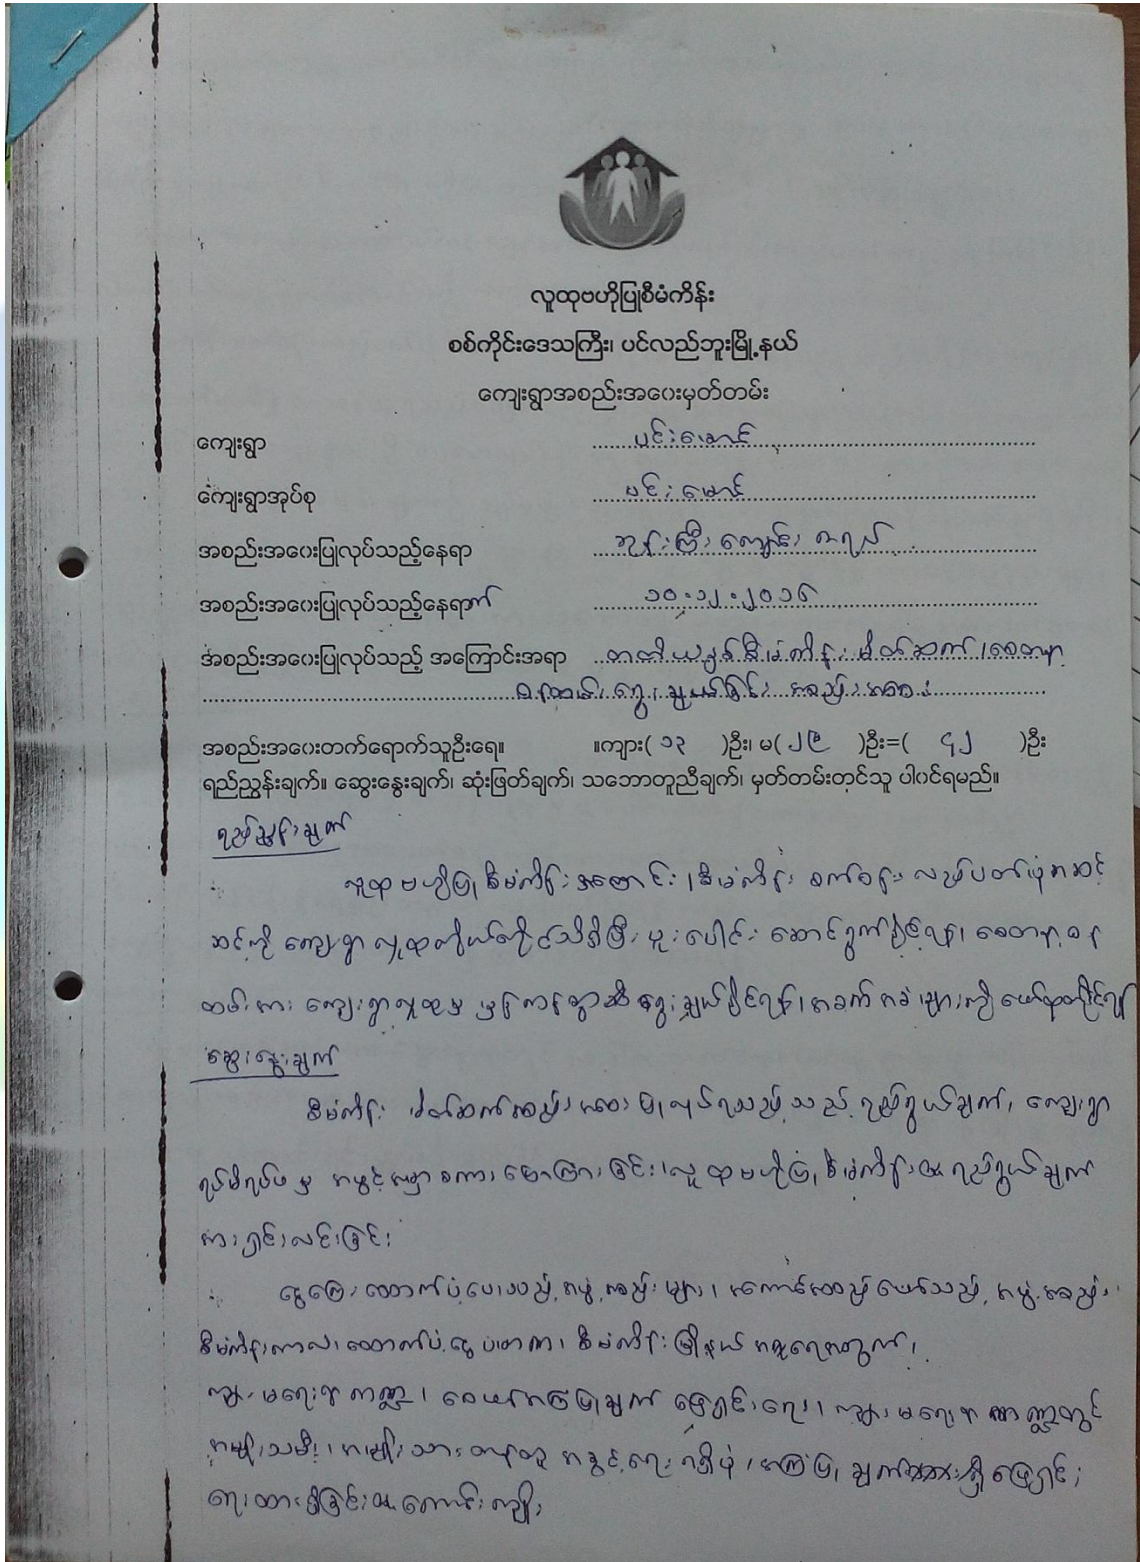 လူထုဗဟိုပြုစီမံကိန်း
စစ်ကိုင်းဒေသကြီး၊ ပင်လည်ဘူးမြို့နယ်
ကျေးရွာအစည်းအဝေးမှတ်တမ်း
ကျေးရွာ ပင်းမောင်
ကျေးရွာအုပ်စု ပင်းမောင်
အစည်းအဝေးပြုလုပ်သည့်နေရာ ဘုန်းကြီးကျောင်း
အစည်းအဝေးပြုလုပ်သည့်နေရက် ၁၀.၁၂.၂၀၁၆
အစည်းအဝေးပြုလုပ်သည့် အကြောင်းအရာ တတိယနှစ်စီမံကိန်း မိတ်ဆက်၊ စေတနာ့
ဝန်ထမ်းရွေးချယ်ခြင်း အစည်းအဝေး
အစည်းအဝေးတက်ရောက်သူဦးရေ။ ။ကျား( ၁၃ )ဦး၊ မ( ၂၉ )ဦး=( ၄၂ )ဦး
ရည်ညွှန်းချက်။ ဆွေးနွေးချက်၊ ဆုံးဖြတ်ချက်၊ သဘောတူညီချက်၊ မှတ်တမ်းတင်သူ ပါဝင်ရမည်။
ရည်ညွှန်းချက်
လူထုဗဟိုပြုစီမံကိန်းအကြောင်း၊ စီမံကိန်း စက်ဝန်း လည်ပတ်ပုံအဆင့်
ဆင့်ကို ကျေးရွာလူထုကိုယ်တိုင်သိရှိပြီး ပူးပေါင်း ဆောင်ရွက်နိုင်ရန်၊ စေတနာ့ဝန်
ထမ်းအား ကျေးရွာလူထုမှ မှန်ကန်စွာ ရွေးချယ်နိုင်ရန်၊ အခက်အခဲများကို
ဆွေးနွေးချက်
စီမံကိန်း မိတ်ဆက်အစည်းအဝေး ပြုလုပ်ရသည့် ရည်ရွယ်ချက်၊ ကျေးရွာ
ရပ်မိရပ်ဖမှ အဖွင့်အမှာစကား ပြောကြားခြင်း၊ လူထုဗဟိုပြုစီမံကိန်း၏ ရည်ရွယ်ချက်
အား ရှင်းလင်းခြင်း
ငွေကြေး ထောက်ပံ့ပေးသည့် အဖွဲ့အစည်းများ၊ အကောင်အထည်ဖော်သည့် အဖွဲ့အစည်း၊
စီမံကိန်းကာလ၊ ထောက်ပံ့ငွေ ပမာဏ၊ စီမံကိန်းမြို့နယ် အရေအတွက်၊
ကျား မရေးရာ ကဏ္ဍ၊ အကြံပြုချက် ဖြေရှင်းရေး၊ ကျား မရေးရာ ကဏ္ဍတွင်
အမျိုးသမီး၊ အမျိုးသား တန်းတူ အခွင့်အရေး ရရှိပုံ၊ အကြံပြုချက် ဖြေရှင်း
ရေး ထားရှိခြင်း၏ ကောင်းကျိုး